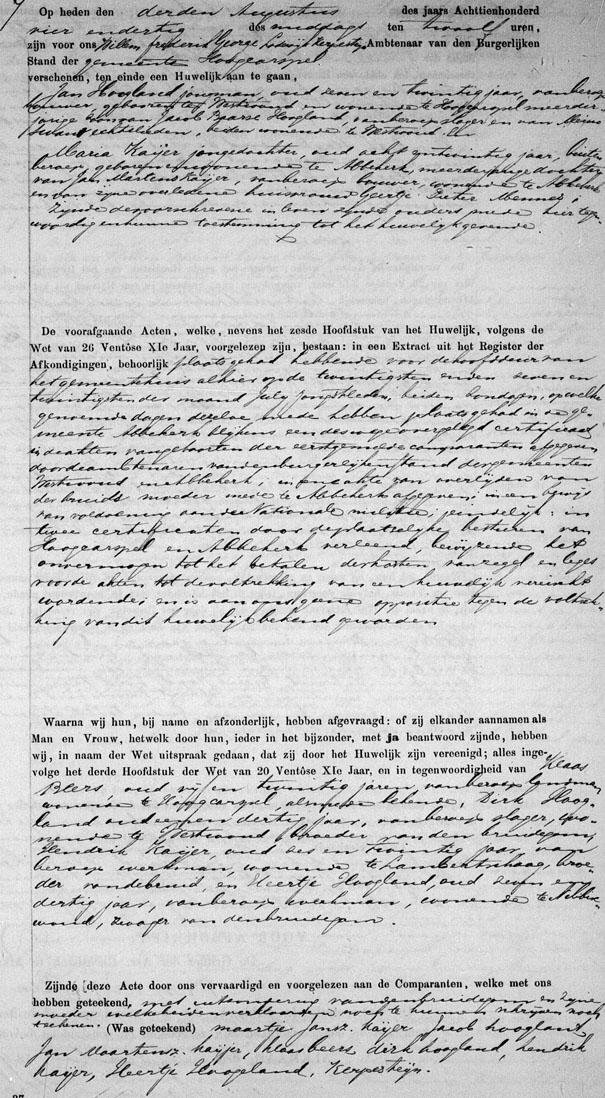 Op heden den derden Augustus des jaars Achttienhonderd
vier en dertig des middags ten twaalf uren,
zijn voor ons Willem frederik George Lodewijk Ambtenaar van den Burgerlijken
Stand der gemeente Hoogcarspel
verschenen, ten einde een Huwelijk aan te gaan,
Jan Hoogland jongman, oud zeven en twintig jaar, van beroep
bouwer, geboren te Westwoud en wonende te Hoogcarspel meerder-
jarige zoon van Jacob Hoogland, van beroep slager en van
echtelieden, beiden wonende te Westwoud En
Maria Kaijer jongedochter, oud acht en twintig jaar, buiten
beroep geboren en wonende te Abbekerk, meerderjarige dochter
van Jan Martensz Kaijer, van beroep bouwer, wonende te Abbekerk
en van zijne overledene huisvrouw Geertje Pieter Mennes;
Zijnde de voorschrevene in leven zijnde ouders mede hier tegen-
woordig en hunne toestemming tot het huwelijk gevende.
De voorafgaande Acten, welke, nevens het zesde Hoofdstuk van het Huwelijk, volgens de
Wet van 26 Ventôse XIe Jaar, voorgelezen zijn, bestaan: in een Extract uit het Register der
Afkondigingen, behoorlijk plaats gehad hebbende voor de hoofddeur van
het gemeentehuis alhier op de twintigsten en den zeven en
twintigsten der maand July jongstleden, beiden zondagen, op welke
genoemde dagen dezelve mede hebben plaats gehad in de ge-
meente Abbekerk blijkens een deswege overgelegd certificaat
in de akten van geboorten der eerstgemelde comparanten afgegeven
door de ambtenaren van den burgerlijken stand der gemeenten
Westwoud en Abbekerk; in een akte van overlijden van
der bruids moeder mede te Abbekerk afgegeven; in een bewijs
van voldoening aan de Nationale militie, eindelijk: in
twee certificaten door de plaatselijke besturen van
Hoogcarspel en Abbekerk verleend, bewijzende het
onvermogen tot het betalen der kosten, van zegel en leges
voor de akten tot de voltrekking van een huwelijk vereischt
wordende; en is aan ons geene oppositie tegen de voltrek-
king van dit huwelijk bekend geworden
Waarna wij hun, bij name en afzonderlijk, hebben afgevraagd: of zij elkander aannamen als
Man en Vrouw, hetwelk door hun, ieder in het bijzonder, met ja beantwoord zijnde, hebben
wij, in naam der Wet uitspraak gedaan, dat zij door het Huwelijk zijn vereenigd; alles inge-
volge het derde Hoofdstuk der Wet van 20 Ventôse XIe Jaar, en in tegenwoordigheid van Klaas
Beers, oud vijf en twintig jaren, van beroep landman,
wonende te Hoogcarspel, bekende, Dirk Hoog-
land oud een en dertig jaar, van beroep slager, wo-
nende te Westwoud broeder van den bruidegom,
Hendrik Kaijer, oud zes en twintig jaar, van
beroep werkman, wonende te Lambertschaag, broe-
der van de bruid, en Heertje Hoogland, oud zeven en
dertig jaar, van beroep werkman, wonende te
woud, zwager van den bruidegom.
Zijnde deze Acte door ons vervaardigd en voorgelezen aan de Comparanten, welke met ons
hebben geteekend, met uitzondering van den bruidegom en zijne
moeder welke beiden verklaarden nooit te kunnen schrijven noch
teekenen. (Was geteekend) maartje Jansz. kaijer Jacob hoogland
Jan Maartensz. kaijer, klaas beers dirk hoogland, hendrik
kaijer, Heertje Hoogland, Kerpesteijn.